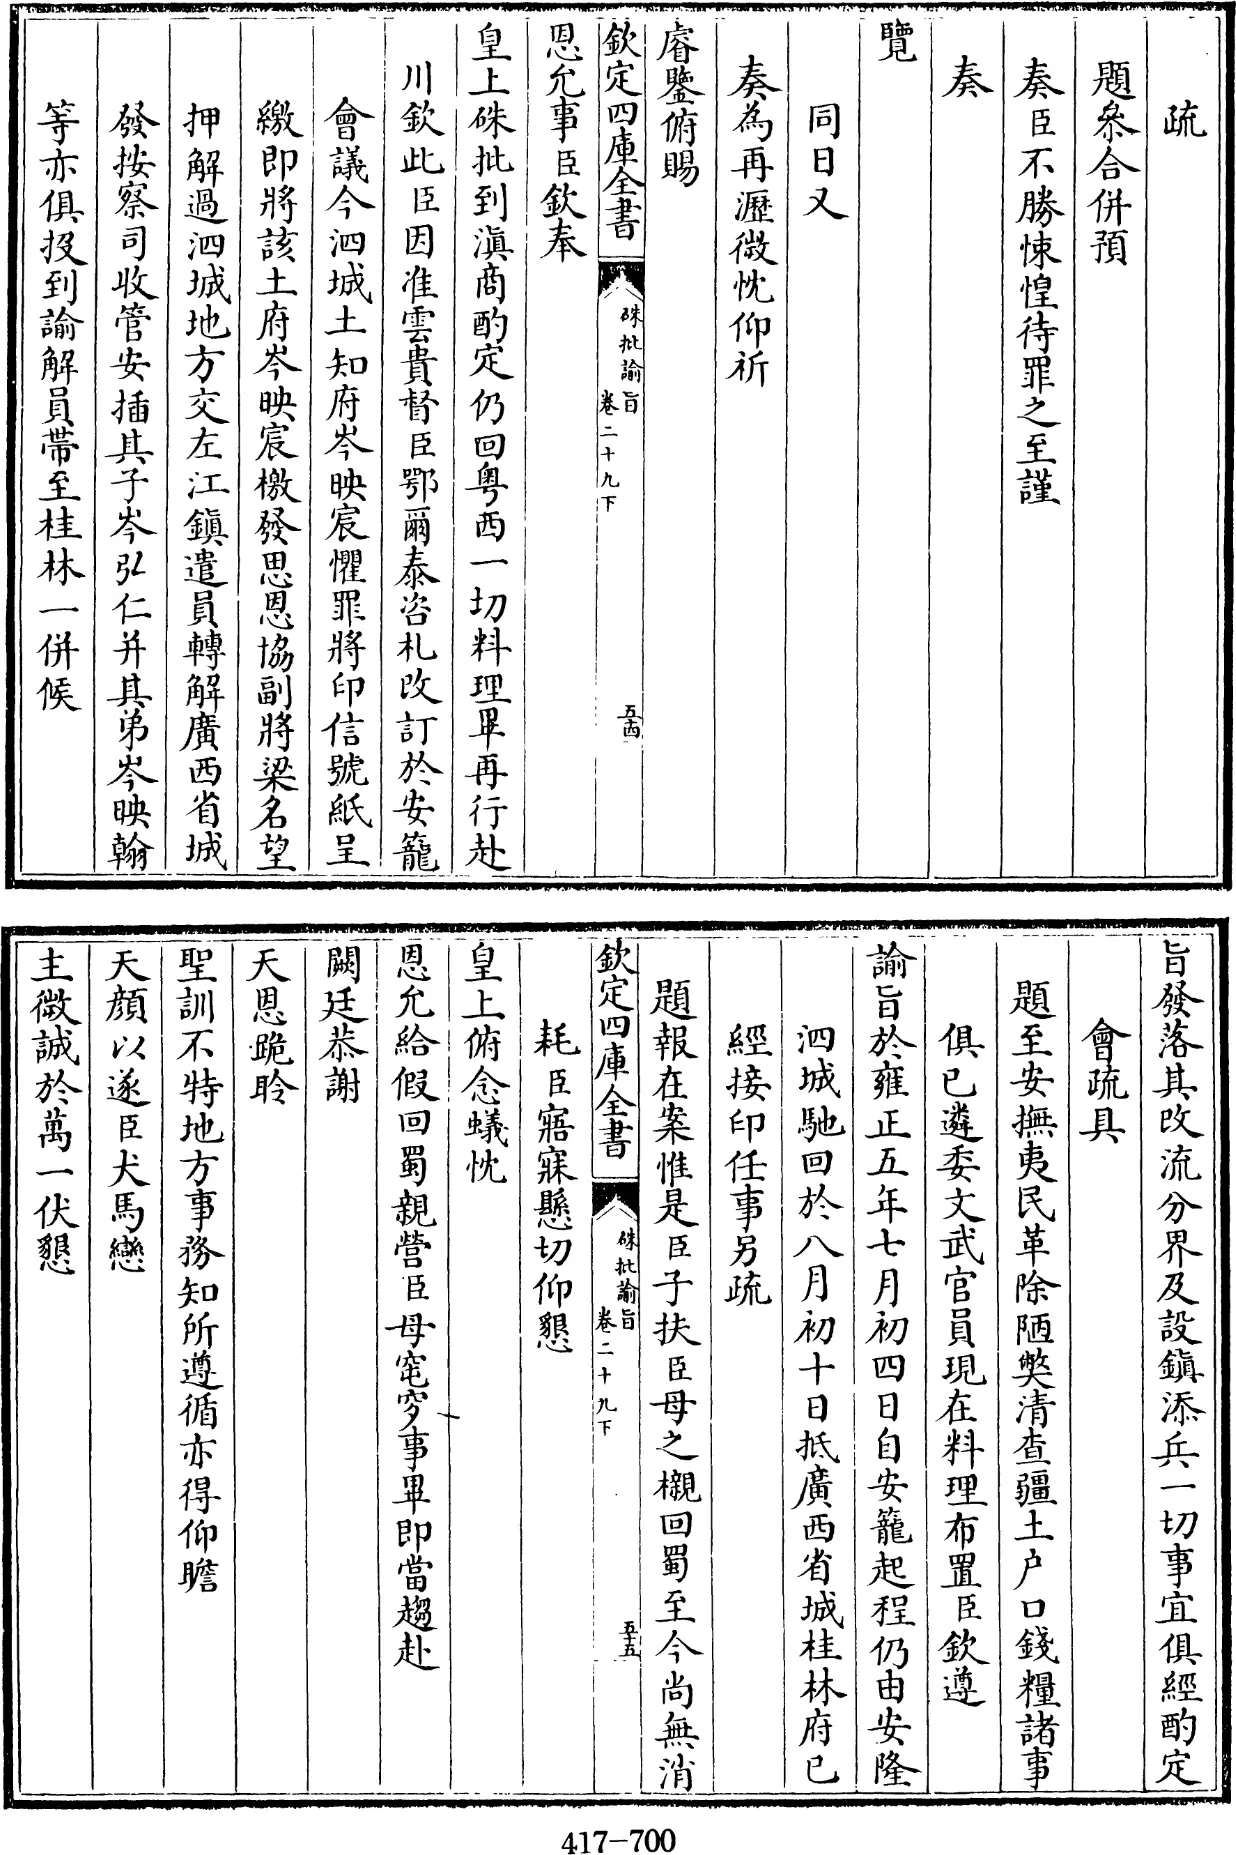 疏
題叅合併預
奏臣不勝悚惶待罪之至謹
奏
覽
同日又
奏為再瀝微忱仰祈
睿鑒俯賜
欽定四庫全書
硃批諭旨
卷二十九下
五十四
恩允事臣欽奉
皇上硃批到滇商酌定仍回粤西一切料理畢再行赴
川欽此臣因准雲貴督臣鄂爾泰咨札改訂於安籠
會議今泗城土知府岑映宸懼罪將印信號紙呈
繳即將該土府岑映宸檄發思恩協副將梁名望
押解過泗城地方交左江鎮遣員轉解廣西省城
發按察司收管安插其子岑弘仁并其弟岑映翰
等亦俱投到諭解員帶至桂林一併候
旨發落其改流分界及設鎮添兵一切事宜俱經酌定
會疏具
題至安撫夷民革除陋弊清查疆土户口錢糧諸事
俱已遴委文武官員現在料理布置臣欽遵
諭旨於雍正五年七月初四日自安籠起程仍由安隆
泗城馳回於八月初十日抵廣西省城桂林府已
經接印任事另疏
題報在案惟是臣子扶臣母之櫬回蜀至今尚無消
欽定四庫全書
硃批諭旨
卷二十九下
五十五
耗臣寤寐懸切仰懇
皇上俯念蟻忱
恩允給假回蜀親營臣母窀穸事畢即當趨赴
闕廷恭謝
天恩跪聆
聖訓不特地方事務知所遵循亦得仰瞻
天顏以遂臣犬馬戀
主微誠於萬一伏懇
417-700